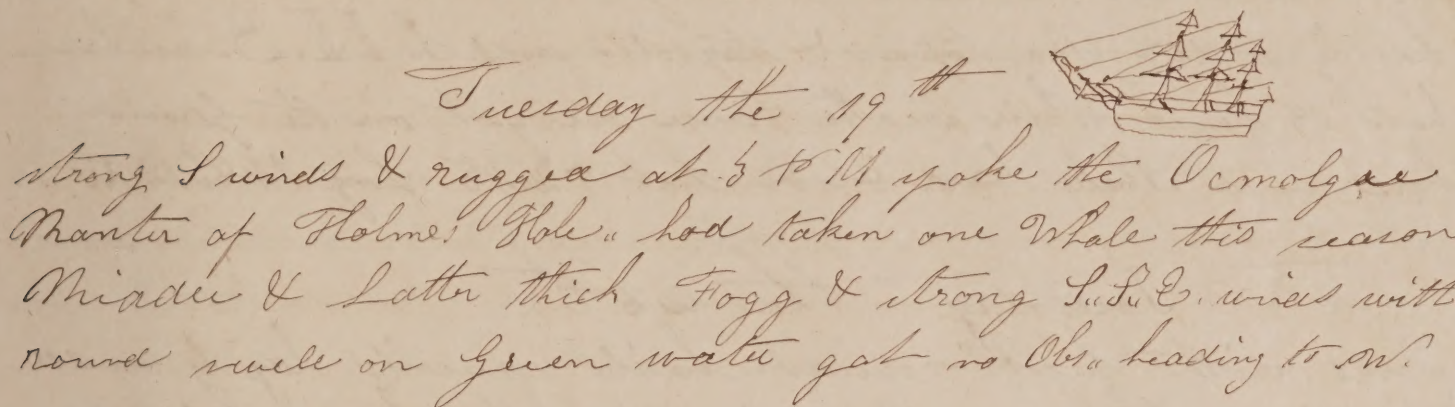 Tuesday the 19th
strong S winds & rugged at 3 P M spoke the Ocmolgae
Manter of Holmes Hole,, had taken one Whale this season
Middle & Latter thick Fogg & strong S,,S,,E. winds with
round swell on Green water got no Obs,, heading to W.